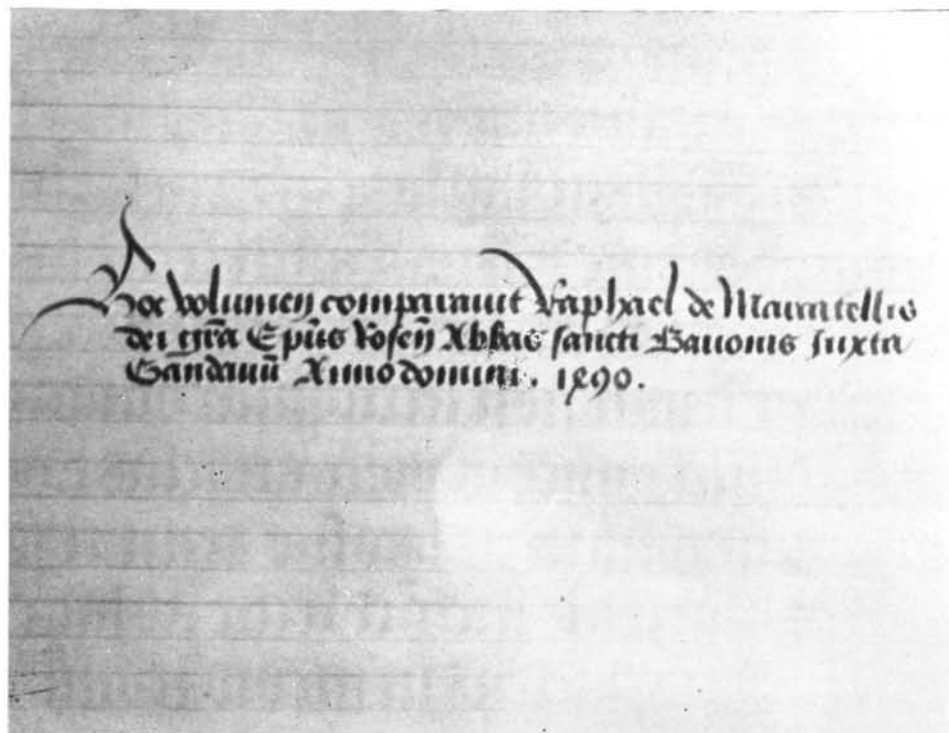 Hoc volumen comparauit Raphael de Marcatellis
dei grã Epũs Rosen̄ Abbas sancti Bauonis iuxta
Gandauũ Anno domini . 1490 .